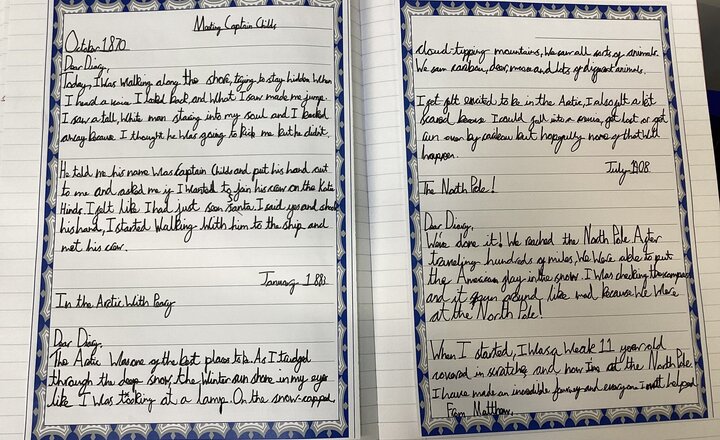 Meeting Captain Childs
October 1870
Dear Diary,
Today, I was walking along the shore, trying to stay hidden when
I heard a voice I looked back, and what I saw made me jump.
I saw a tall, white man staring into my soul and I backed
away because I thought he was going to kick me but he didn't.
He told me his name was Captain Childs and put his hand out
to me and asked me if I wanted to join his crew on the Katie
Hinds. I felt like I had just seen Santa. I said yes and shook
his hand, I started walking with him to the ship and
met his crew.
January 1881
In the Arctic With Peary
Dear Diary,
The Arctic was one of the best places to be. As I trudged
through the deep snow, the winter sun shone in my eyes
like I was looking at a lamp. On the snow-capped,
cloud-tipping mountains, we saw all sorts of animals.
We saw caribou, deer, moose and lots of different animals.
I got felt excited to be in the Arctic, I also felt a bit
scared because I could fall into a crevice, get lost or get
run over by caribou but hopefully none of that will
happen.
July 1908
The North Pole!
Dear Diary,
We've done it! We reached the North Pole After
traveling hundreds of miles, we were able to put
the American flag in the snow. I was checking the compass
and it spun around like mad because we were
at the North Pole!
When I started, I was a weak 11 year old
covered in scratches and now I'm at the North Pole.
I have made an incredible journey and everyone I met helped
From Matthew.